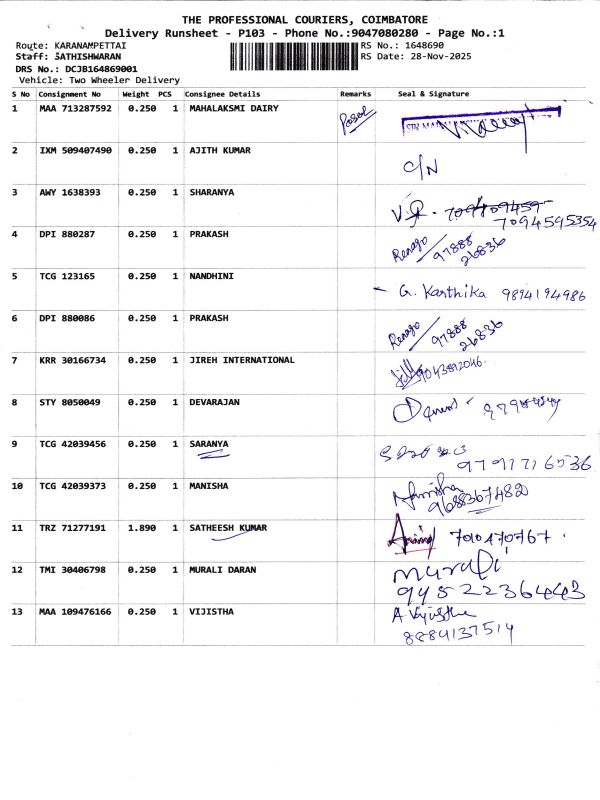 THE PROFESSIONAL COURIERS, COIMBATORE
Delivery Runsheet - P103 - Phone No.:9047080280 - Page No.:1
Route: KARANAMPETTAI
RS No.: 1648690
Staff: SATHISHWARAN
RS Date: 28-Nov-2025
DRS No.: DCJB164869001
Vehicle: Two Wheeler Delivery
S No Consignment No Weight PCS Consignee Details Remarks Seal & Signature
1 MAA 713287592 0.250 1 MAHALAKSMI DAIRY
2 IXM 509407490 0.250 1 AJITH KUMAR C/N
3 AWY 1638393 0.250 1 SHARANYA
7094595354
4 DPI 880287 0.250 1 PRAKASH 97888
26836
5 TCG 123165 0.250 1 NANDHINI - G. Karthika 9894194986
6 DPI 880086 0.250 1 PRAKASH 97888
26836
7 KRR 30166734 0.250 1 JIREH INTERNATIONAL 9043892046
8 STY 8050049 0.250 1 DEVARAJAN
9 TCG 42039456 0.250 1 SARANYA
9791716536
10 TCG 42039373 0.250 1 MANISHA Manisha
9688367482
11 TRZ 71277191 1.890 1 SATHEESH KUMAR
12 TMI 30406798 0.250 1 MURALI DARAN murali
9452236443
13 MAA 109476166 0.250 1 VIJISTHA A. Vijistha
8884137514